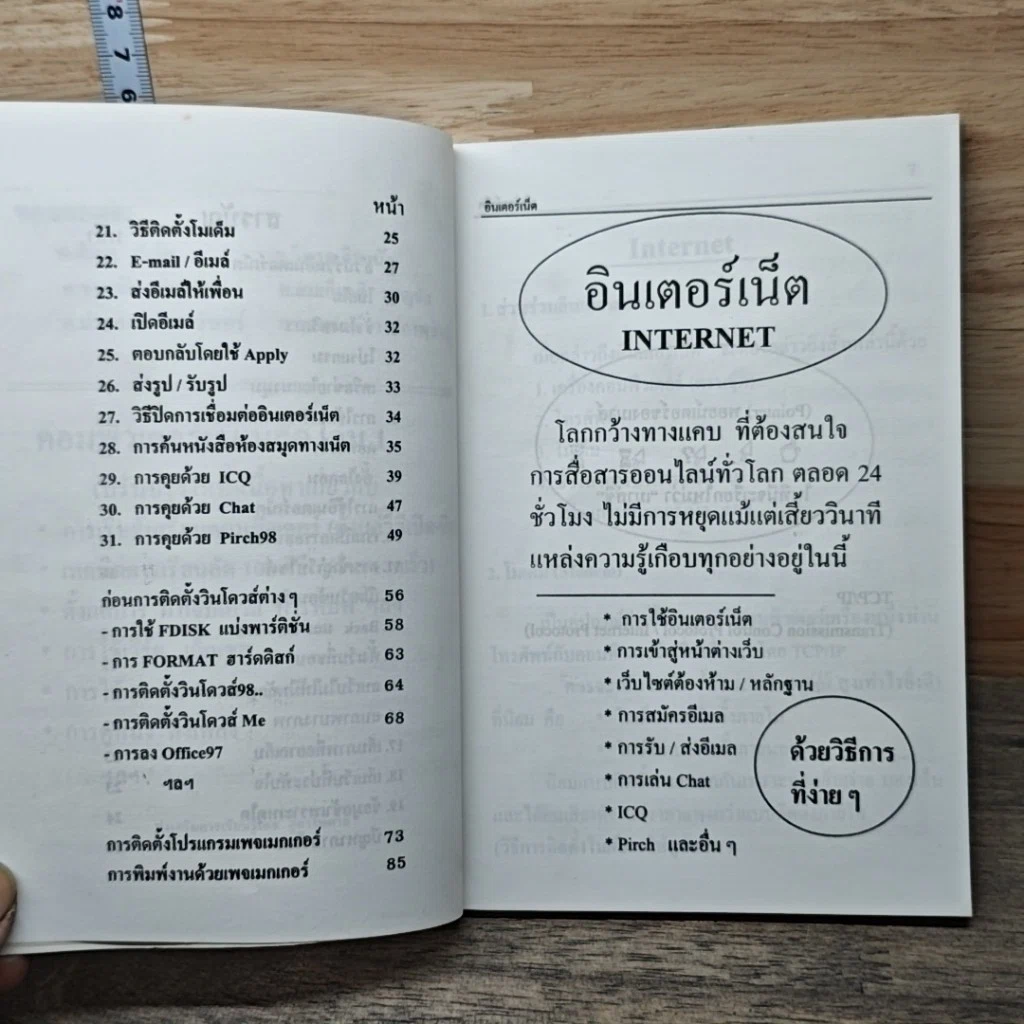 8
7
6
หน้า
21. วิธีติดตั้งโมเด็ม 25
22. E-mail / อีเมล์ 27
23. ส่งอีเมล์ให้เพื่อน 30
24. เปิดอีเมล์ 32
25. ตอบกลับโดยใช้ Apply 32
26. ส่งรูป / รับรูป 33
27. วิธีปิดการเชื่อมต่ออินเตอร์เน็ต 34
28. การค้นหนังสือห้องสมุดทางเน็ต 35
29. การคุยด้วย ICQ 39
30. การคุยด้วย Chat 47
31. การคุยด้วย Pirch98 49
ก่อนการติดตั้งวินโดวส์ต่าง ๆ 56
- การใช้ FDISK แบ่งพาร์ติชั่น 58
- การ FORMAT ฮาร์ดดิสก์ 63
- การติดตั้งวินโดวส์98.. 64
- การติดตั้งวินโดวส์ Me 68
- การลง Office97
ฯลฯ
การติดตั้งโปรแกรมเพจเมกเกอร์ 73
การพิมพ์งานด้วยเพจเมกเกอร์ 85
อินเตอร์เน็ต
อินเตอร์เน็ต
INTERNET
โลกกว้างทางแคบ ที่ต้องสนใจ
การสื่อสารออนไลน์ทั่วโลก ตลอด 24
ชั่วโมง ไม่มีการหยุดแม้แต่เสี้ยววินาที
แหล่งความรู้เกือบทุกอย่างอยู่ในนี้
* การใช้อินเตอร์เน็ต
* การเข้าสู่หน้าต่างเว็บ
* เว็บไซต์ต้องห้าม / หลักฐาน
* การสมัครอีเมล
* การรับ / ส่งอีเมล
* การเล่น Chat
* ICQ
* Pirch และอื่น ๆ
ด้วยวิธีการ
ที่ง่าย ๆ